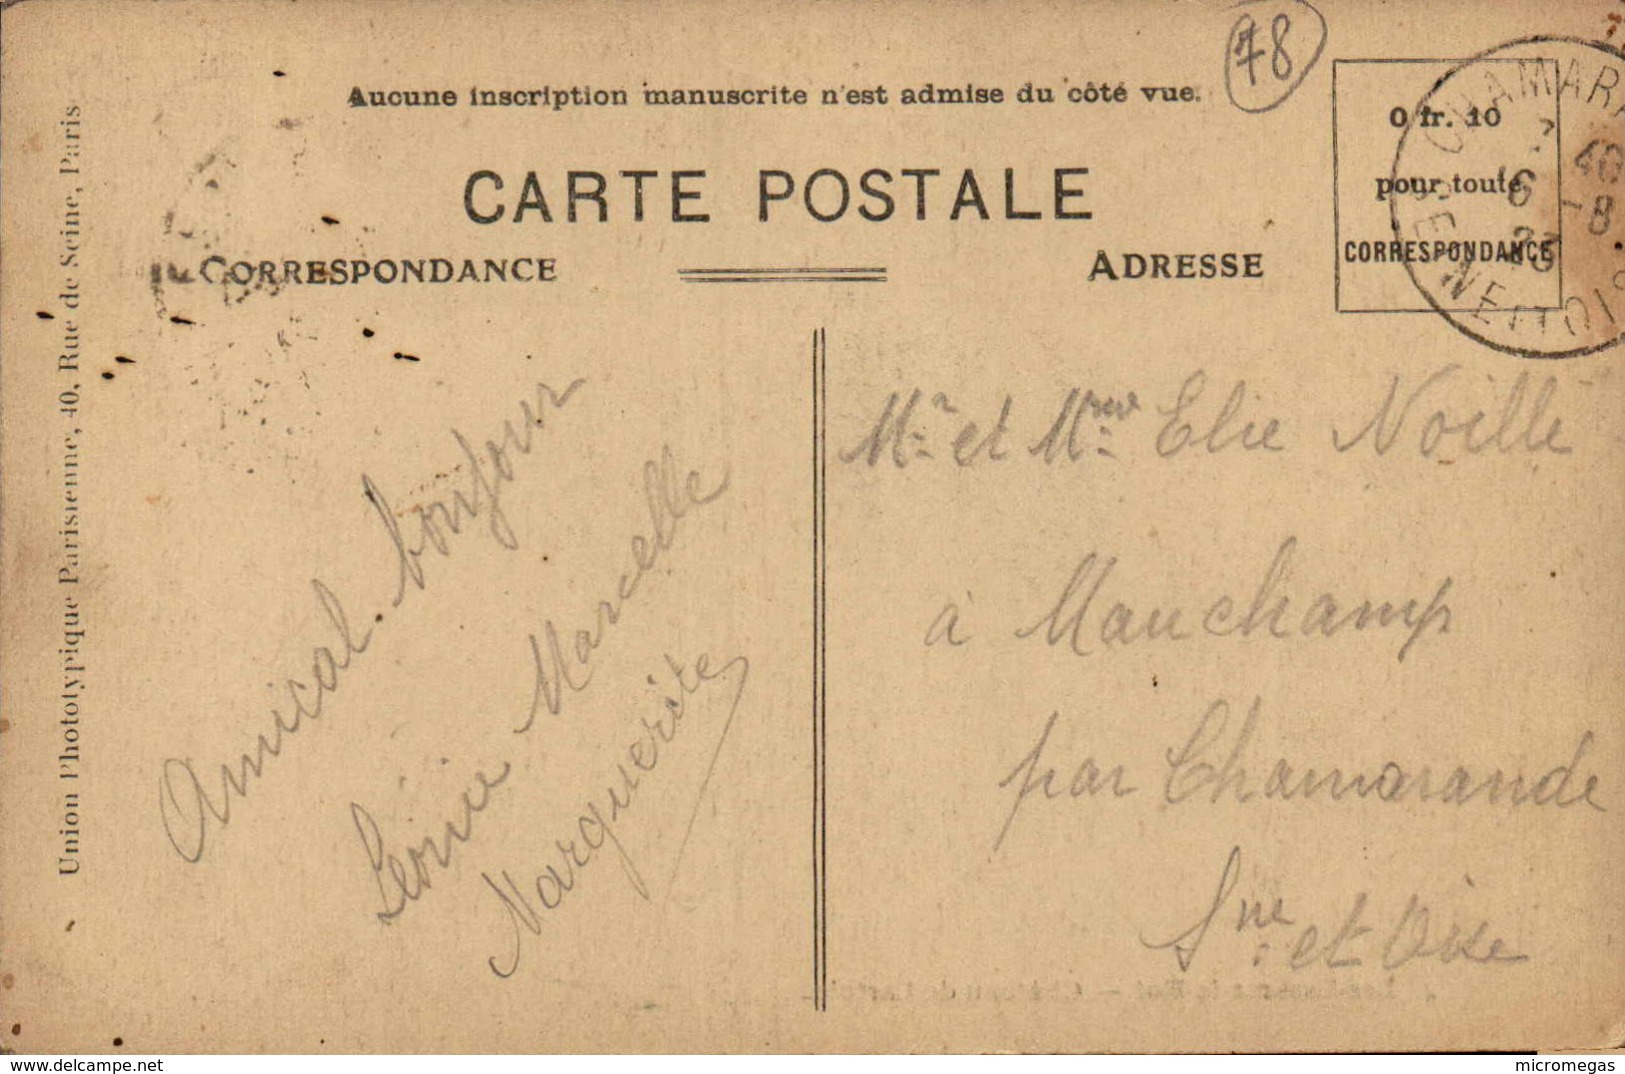 78
Aucune inscription manuscrite n'est admise du côté vue.
CARTE POSTALE
CORRESPONDANCE
ADRESSE
0 fr. 10
pour toute
CORRESPONDANCE
CHAMARA
7 40
6 -8
23
SEINE ET OISE
Union Phototypique Parisienne, 40, Rue de Seine, Paris
Amical bonjour
Léonie Marcelle
Marguerite
Mr et Mme Elie Noille
à Mauchamp
par Chamarande
Sne et Oise
delcampe.net
micromegas